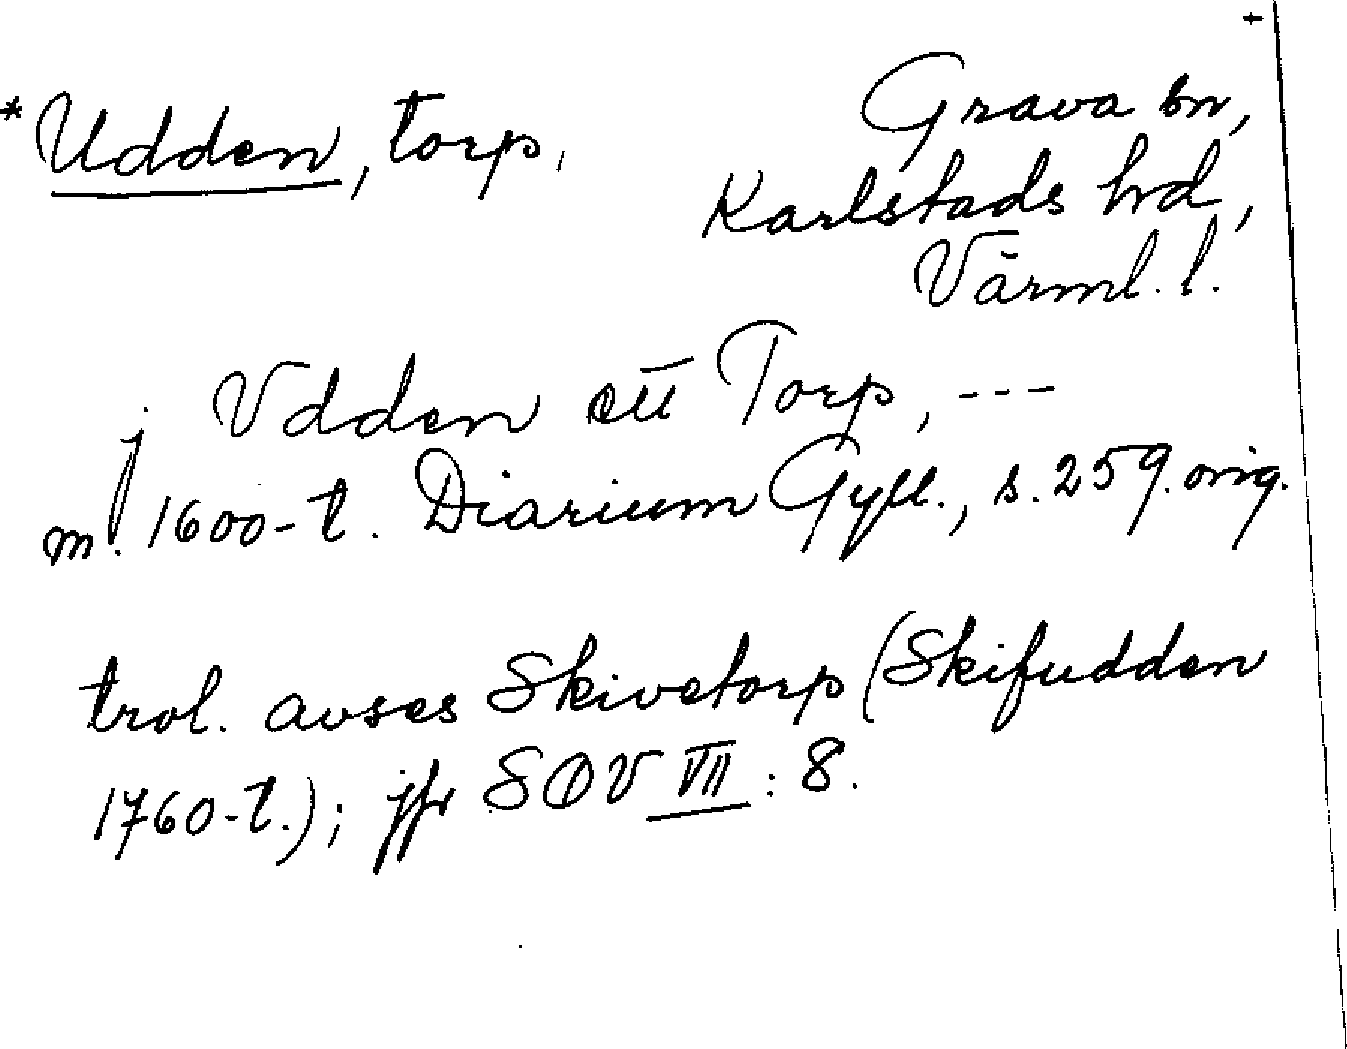 +
*Udden, torp.
Grava sn,
Karlstads hd,
Värml. l.
j Vdden ett Torp, ---
m. 1600-t. Diarium Gyll., s. 259. orig.
trol. avses Skivetorp (Skifudden
1760-t.); jfr SOV VII : 8.